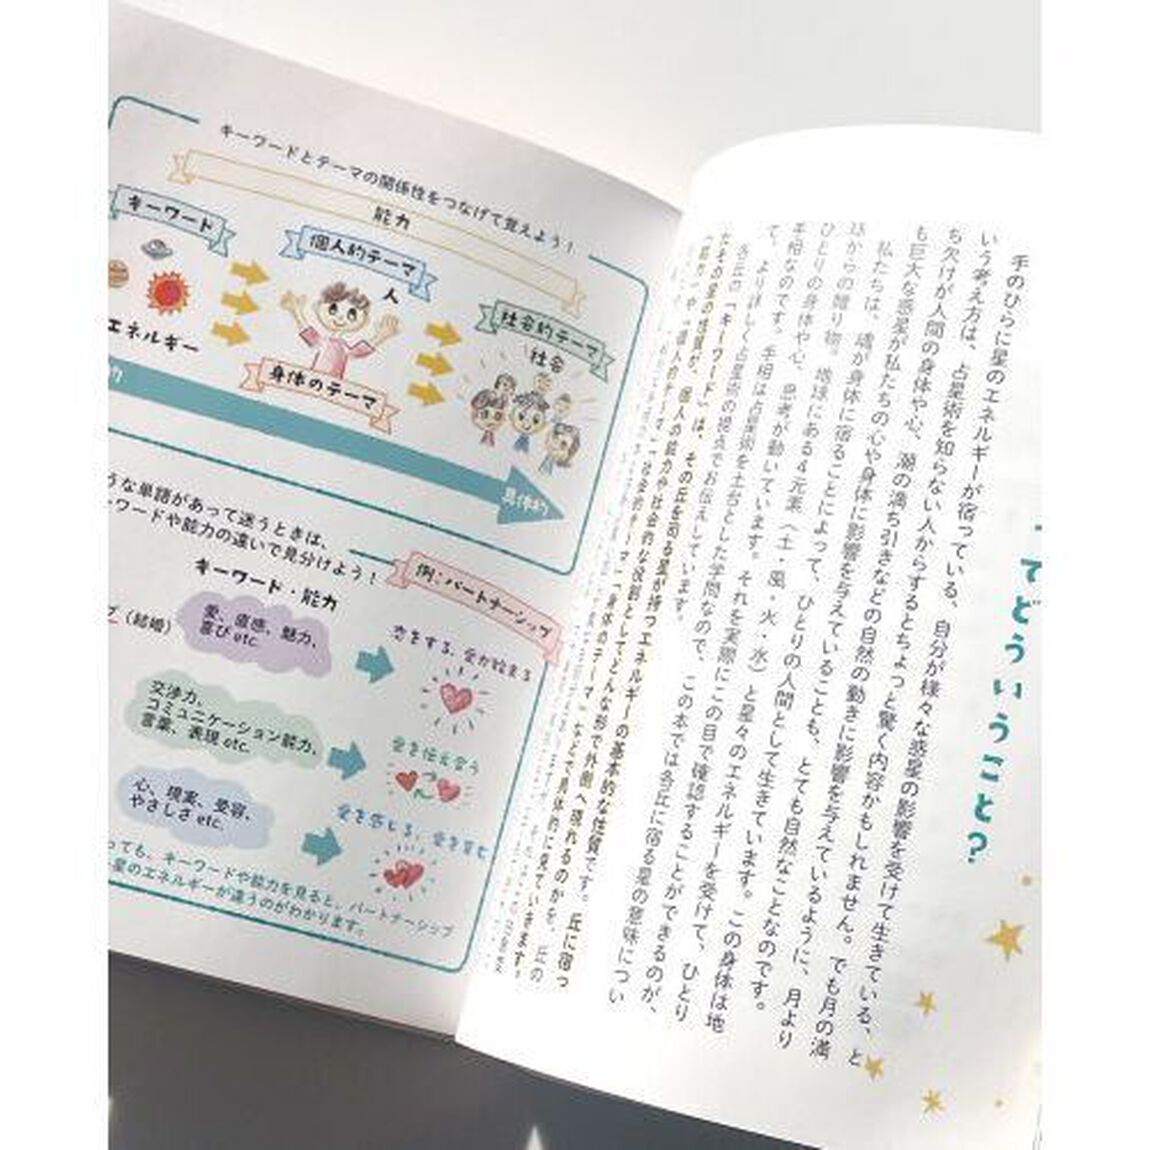 てどういうこと?
手のひらに星のエネルギーが宿っている、自分が様々な惑星の影響を受けて生きている、と
いう考え方は、占星術を知らない人からするとちょっと驚く内容かもしれません。でも月の満
ち欠けが人間の身体や心、潮の満ち引きなどの自然の動きに影響を与えているように、月より
も巨大な惑星が私たちの心や身体に影響を与えていることも、とても自然なことなのです。
私たちは、魂が身体に宿ることによって、ひとりの人間として生きています。この身体は地
球からの贈り物。地球にある4元素(土・風・火・水)と星々のエネルギーを受けて、ひとり
ひとりの身体や心、思考が動いています。それを実際にこの目で確認することができるのが、
手相なのです。手相は占星術を土台とした学問なので、この本では各丘に宿る星の意味につい
て、より詳しく占星術の視点でお伝えしています。
各丘の「キーワード」は、その丘を司る星が持つエネルギーの基本的な性質です。丘に宿っ
たその星の性質が、個人の能力や社会的な役割としてどんな形で外側へ現れるのかを、丘の
キーワードとテーマの関係性をつなげて覚えよう!
能力
キーワード
個人的テーマ
人
社会的テーマ
社会
エネルギー
身体のテーマ
具体的
うな単語があって迷うときは、
ーワードや能力の違いで見分けよう!
例:パートナーシップ
キーワード・能力
(結婚)
愛、直感、魅力、
喜び etc.
恋をする、愛が始まる
交渉力、
コミュニケーション能力、
言葉、表現 etc.
愛を伝え合う
心、現実、受容、
やさしさ etc.
愛を感じる、愛を育む
っても、キーワードや能力を見ると、パートナーシップ
星のエネルギーが違うのがわかります。